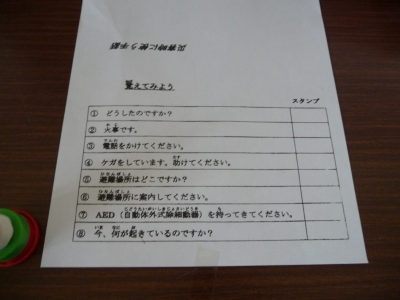 災害時に使う手話
覚えてみよう
スタンプ
① どうしたのですか？
② 火事です。
③ 電話をかけてください。
④ ケガをしています。助けてください。
⑤ 避難場所はどこですか？
⑥ 避難場所に案内してください。
⑦ AED（自動体外式除細動器）を持ってきてください。
⑧ 今、何が起きているのですか？